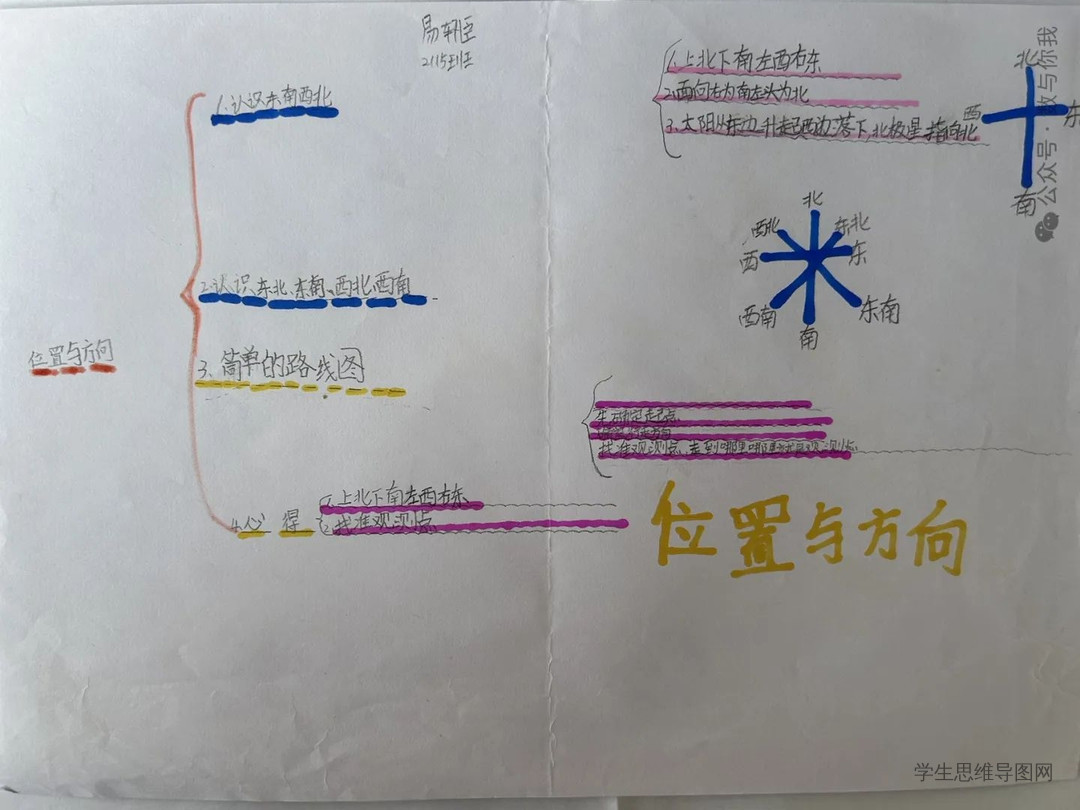 易轩臣
2115班
位置与方向
1.认识东南西北
1.上北下南左西右东
2.面向右为南左头为北
3.太阳从东边升起西边落下,北极星指向北
北
西
东
南
2.认识东北、东南、西北、西南
北
西北
东北
西
东
西南
东南
南
3、简单的路线图
找准观测点,走到哪里哪里就是观测点
4.心得
1.上北下南左西右东
2.找准观测点
位置与方向
公众号·数与你我
学生思维导图网